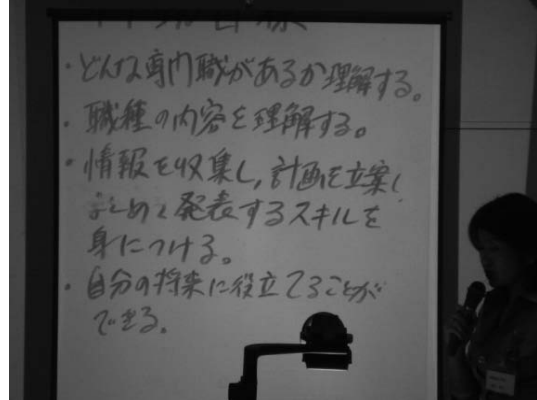 ・どんな専門職があるか理解する。
・職種の内容を理解する。
・情報を収集し,計画を立案し
まとめて発表するスキルを
身につける。
・自分の将来に役立てることが
できる。